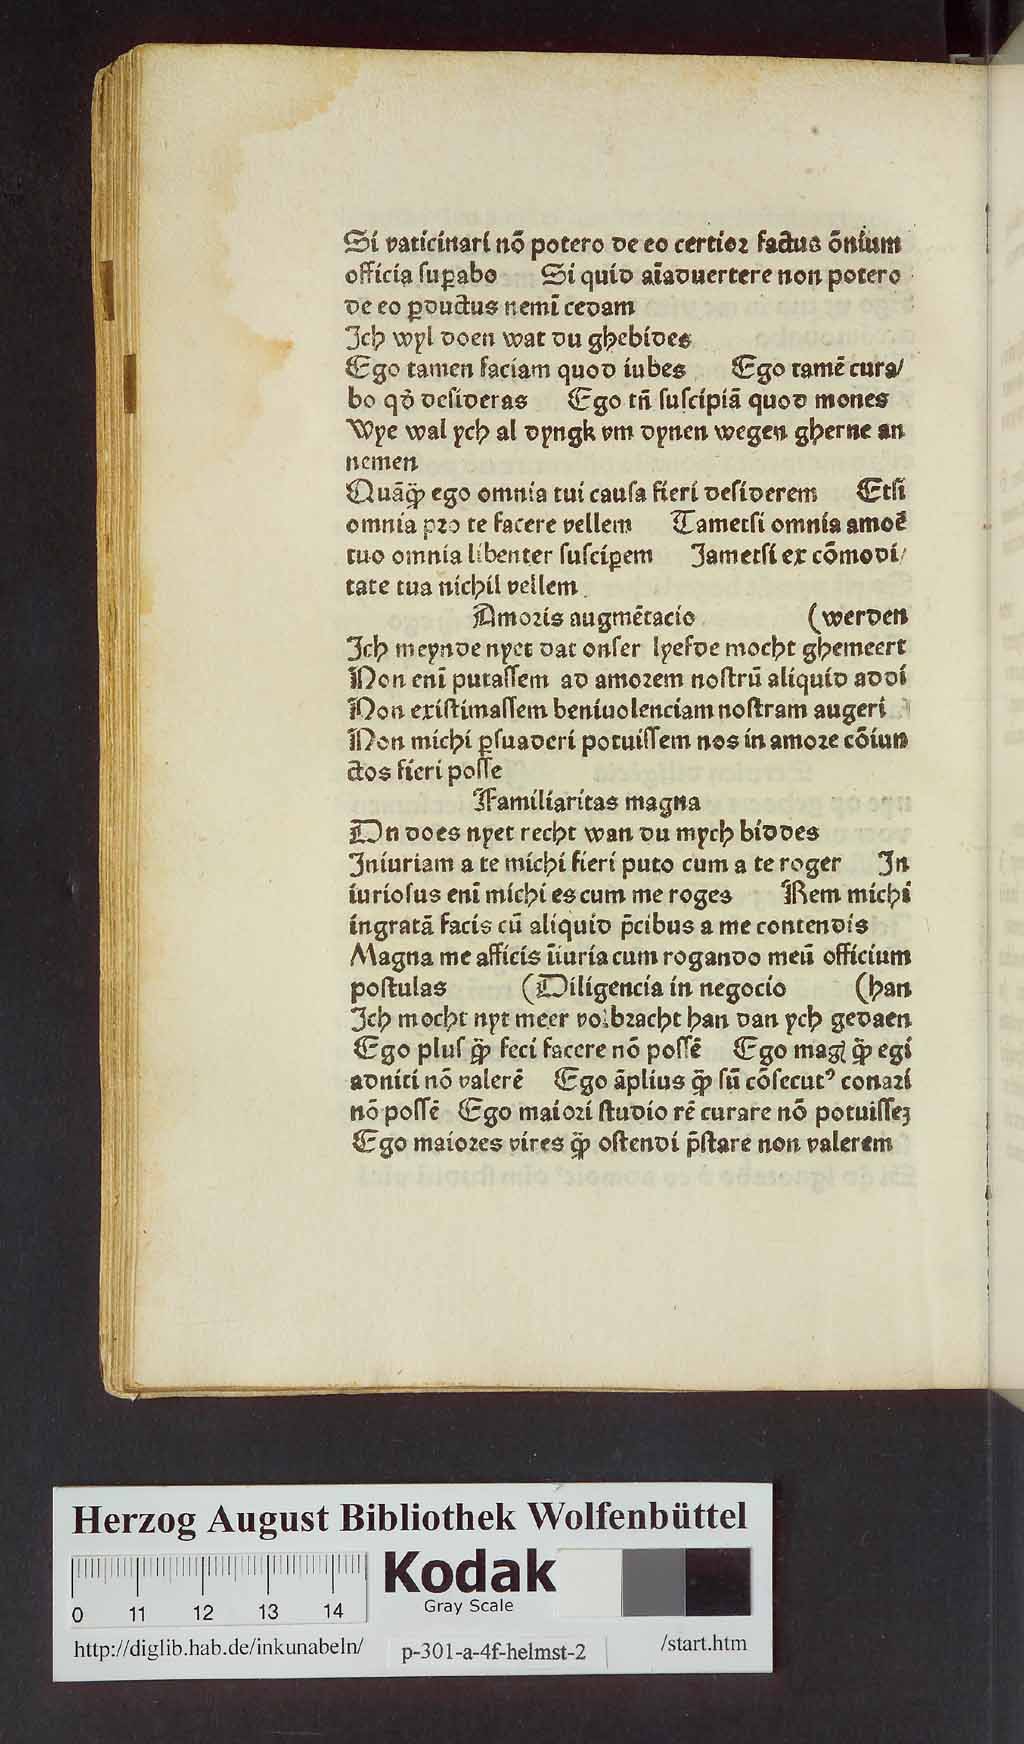 Si vaticinari nō potero de eo certior factus ōnium
officia suꝑabo Si quid aīaduertere non potero
de eo ꝑductus nemī cedam
Ich wyl doen wat du ghebides
Ego tamen faciam quod iubes Ego tamē cura/
bo qd̄ desideras Ego tn̄ suscipiā quod mones
Wye wal ych al dyngk vm dynen wegen gherne an
nemen
Quāꝙ̄ ego omnia tui causa fieri desiderem Etsi
omnia pro te facere vellem Tametsi omnia amoē
tuo omnia libenter susciꝑem Iametsi ex cōmodi/
tate tua nichil vellem
Amoris augmētacio (werden
Ich meynde nyet dat onser lyefde mocht ghemeert
Non enī putassem ad amorem nostrū aliquid addi
Non existimassem beniuolenciam nostram augeri
Non michi ꝑsuaderi potuissem nos in amore cōiun
ctos fieri posse
Familiaritas magna
Dn does nyet recht wan du mych biddes
Iniuriam a te michi fieri puto cum a te roger In
iuriosus enī michi es cum me roges Rem michi
ingratā facis cū aliquid p̄cibus a me contendis
Magna me afficis īiuria cum rogando meū officium
postulas (Diligencia in negocio (han
Ich mocht nyt meer volbracht han dan ych gedaen
Ego plus ꝙ̄ feci facere nō possē Ego magꝭ ꝙ̄ egi
adniti nō valerē Ego āplius ꝙ̄ sū cōsecutꝰ conari
nō possē Ego maiori studio rē curare nō potuisseꝫ
Ego maiores vires ꝙ̄ ostendi p̄stare non valerem
Herzog August Bibliothek Wolfenbüttel
0 11 12 13 14
Kodak
Gray Scale
http://diglib.hab.de/inkunabeln/ p-301-a-4f-helmst-2 /start.htm